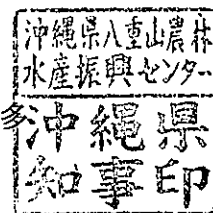 沖縄県八重山農林
水産振興センター
多沖縄県
知事印